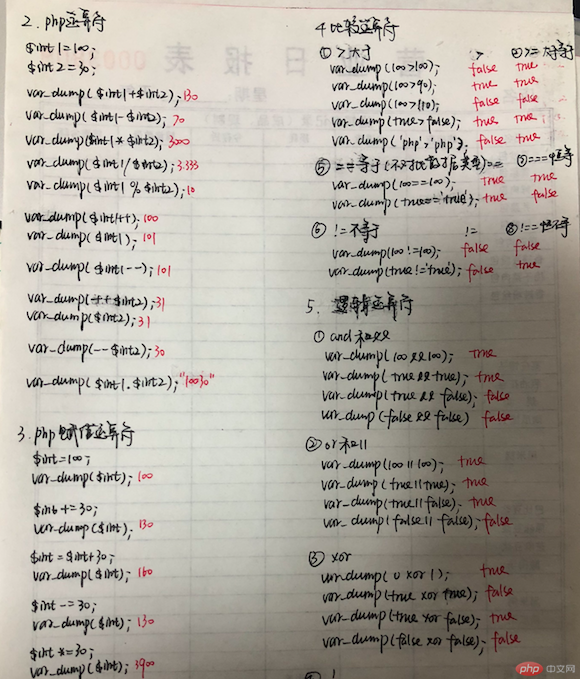 2. php运算符
$int1=100;
$int2=30;
var_dump($int1+$int2); 130
var_dump($int1-$int2); 70
var_dump($int1*$int2); 3000
var_dump($int1/$int2); 3.333
var_dump($int1%$int2); 10
var_dump($int1++); 100
var_dump($int1); 101
var_dump($int1--); 101
var_dump(++$int2); 31
var_dump($int2); 31
var_dump(--$int2); 30
var_dump($int1.$int2); "10030"
3. php赋值运算符
$int=100;
var_dump($int); 100
$int+=30;
var_dump($int); 130
$int=$int+30;
var_dump($int); 160
$int-=30;
var_dump($int); 130
$int*=30;
var_dump($int); 3900
4 比较运算符
① > 大于 > ② >= 大于等于
var_dump(100>100); false true
var_dump(100>90); true true
var_dump(100>110); false false
var_dump(true>false); true true
var_dump('php'>'php'); false true
⑤ == 等于(不对比数据类型) == ⑦ ===恒等
var_dump(100==100); true true
var_dump(true=='true'); true false
⑥ !=不等于 != ⑧ !==恒不等
var_dump(100!=100); false false
var_dump(true!='true'); false true
5. 逻辑运算符
① and和&&
var_dump(100&&100); true
var_dump(true&&true); true
var_dump(true&&false); false
var_dump(false&&false) false
② or和||
var_dump(100||100); true
var_dump(true||true); true
var_dump(true||false); true
var_dump(false||false); false
③ xor
var_dump(0 xor 1); true
var_dump(true xor true); false
var_dump(true xor false); true
var_dump(false xor false); false
php 中文网